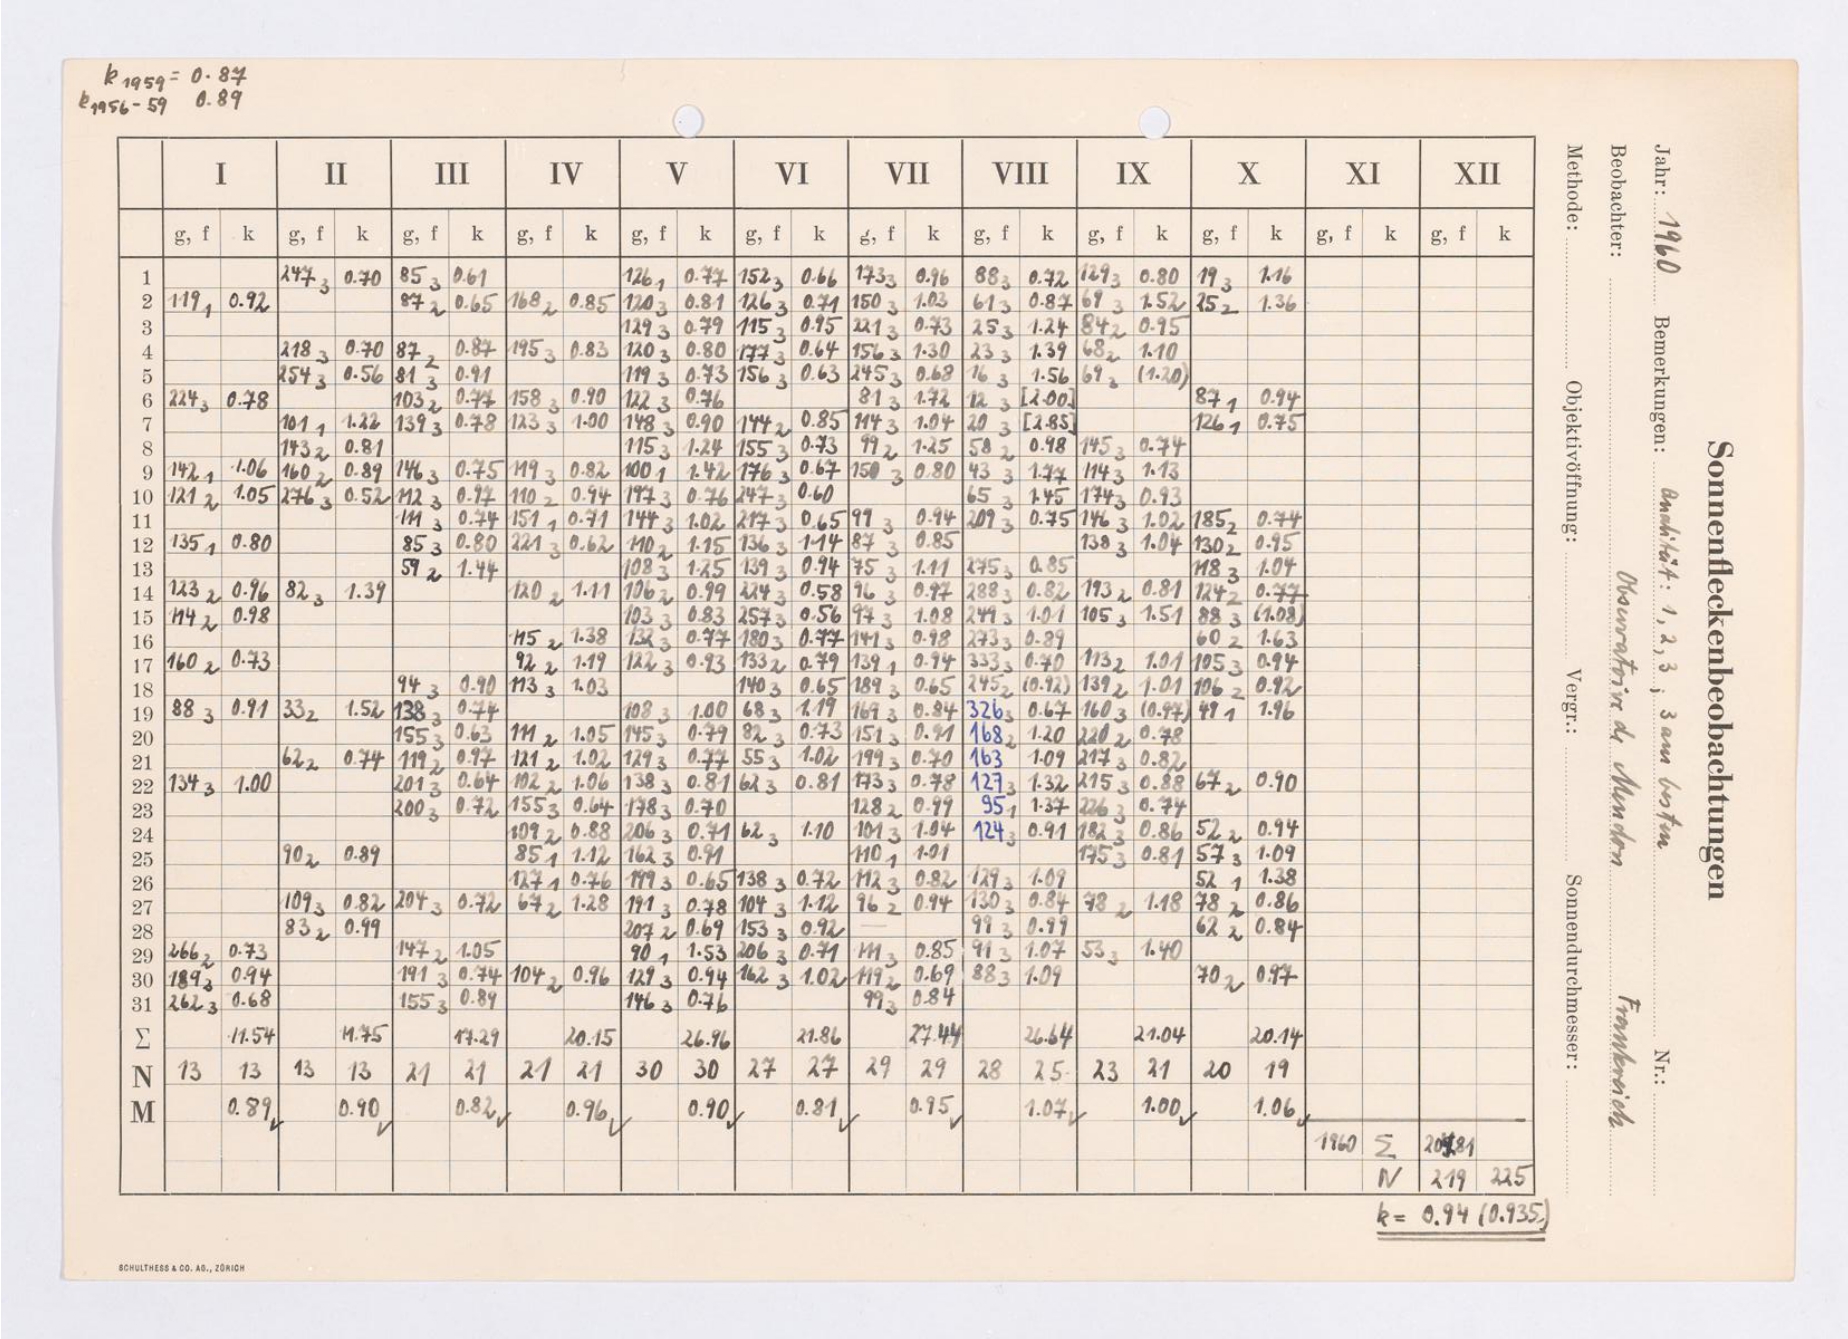 k 1959 = 0.87
k 1956-59 0.89
I II III IV V VI VII VIII IX X XI XII
g, f k g, f k g, f k g, f k g, f k g, f k g, f k g, f k g, f k g, f k g, f k g, f k
1 247 3 0.70 85 3 0.61 126 1 0.77 152 3 0.66 173 3 0.96 88 3 0.72 129 3 0.80 19 3 1.16
2 119 1 0.92 87 2 0.65 168 2 0.85 120 3 0.81 126 3 0.71 150 3 1.03 61 3 0.87 69 3 1.52 25 2 1.36
3 129 3 0.79 115 3 0.95 221 3 0.73 25 3 1.24 84 2 0.95
4 218 3 0.70 87 2 0.87 195 3 0.83 120 3 0.80 177 3 0.64 156 3 1.30 23 3 1.39 68 2 1.10
5 254 3 0.56 81 3 0.91 119 3 0.73 156 3 0.63 245 3 0.68 16 3 1.56 69 2 (1.20)
6 224 3 0.78 103 2 0.77 158 3 0.90 122 3 0.76 81 3 1.72 12 3 [2.00] 87 1 0.94
7 101 1 1.22 139 3 0.78 123 3 1.00 148 3 0.90 144 2 0.85 114 3 1.04 20 3 [2.85] 126 1 0.75
8 143 2 0.81 115 3 1.24 155 3 0.73 99 2 1.25 58 2 0.98 145 3 0.74
9 142 1 1.06 160 2 0.89 146 3 0.75 119 3 0.82 100 1 1.42 176 3 0.67 150 3 0.80 43 3 1.77 114 3 1.13
10 121 2 1.05 276 3 0.52 112 3 0.97 110 2 0.94 197 3 0.76 247 3 0.60 65 3 1.45 174 3 0.93
11 111 3 0.74 151 1 0.71 144 3 1.02 217 3 0.65 99 3 0.94 209 3 0.75 146 3 1.02 185 2 0.74
12 135 1 0.80 85 3 0.80 221 3 0.62 110 2 1.15 136 3 1.14 87 3 0.85 138 3 1.04 130 2 0.95
13 59 2 1.44 108 3 1.25 139 3 0.94 75 3 1.11 275 3 0.85 118 3 1.04
14 123 2 0.96 82 3 1.39 120 2 1.11 106 2 0.99 224 3 0.58 96 3 0.97 288 3 0.82 193 2 0.81 124 2 0.77
15 114 2 0.98 103 3 0.83 257 3 0.56 97 3 1.08 249 3 1.01 105 3 1.51 88 3 (1.08)
16 115 2 1.38 132 3 0.77 180 3 0.77 141 3 0.98 273 3 0.89 60 2 1.63
17 160 2 0.73 92 2 1.19 122 3 0.93 133 2 0.79 139 1 0.94 333 3 0.70 113 2 1.01 105 3 0.94
18 94 3 0.90 113 3 1.03 140 3 0.65 189 3 0.65 245 2 (0.92) 139 2 1.01 106 2 0.92
19 88 3 0.91 33 2 1.52 138 3 0.74 108 3 1.00 68 3 1.19 169 3 0.84 326 3 0.67 160 3 (0.97) 49 1 1.96
20 155 3 0.63 111 2 1.05 145 3 0.79 82 3 0.73 151 3 0.91 168 2 1.20 220 2 0.78
21 62 2 0.74 119 2 0.97 121 2 1.02 129 3 0.77 55 3 1.02 199 3 0.70 163 1.09 217 3 0.82
22 134 3 1.00 201 3 0.64 102 2 1.06 138 3 0.81 62 3 0.81 173 3 0.78 127 3 1.32 215 3 0.88 67 2 0.90
23 200 3 0.72 155 3 0.64 178 3 0.70 128 2 0.99 95 1 1.37 226 3 0.74
24 109 2 0.88 206 3 0.71 62 3 1.10 101 3 1.04 124 3 0.91 182 3 0.86 52 2 0.94
25 90 2 0.89 85 1 1.12 162 3 0.91 110 1 1.01 175 3 0.81 57 3 1.09
26 127 1 0.76 199 3 0.65 138 3 0.72 112 3 0.82 129 3 1.09 52 1 1.38
27 109 3 0.82 204 3 0.72 67 2 1.28 191 3 0.78 104 3 1.12 96 2 0.94 130 3 0.84 78 2 1.18 78 2 0.86
28 83 2 0.99 207 2 0.69 153 3 0.92 — 99 3 0.99 62 2 0.84
29 266 2 0.73 147 2 1.05 90 1 1.53 206 3 0.71 111 3 0.85 91 3 1.07 53 3 1.40
30 189 3 0.94 191 3 0.74 104 2 0.96 129 3 0.94 162 3 1.02 119 2 0.69 88 3 1.09 70 2 0.97
31 262 3 0.68 155 3 0.89 146 3 0.76 99 3 0.84
Σ 11.54 11.75 17.29 20.15 26.96 21.86 27.44 26.64 21.04 20.14
N 13 13 13 13 21 21 21 21 30 30 27 27 29 29 28 25 23 21 20 19
M 0.89 ✓ 0.90 ✓ 0.82 ✓ 0.96 ✓ 0.90 ✓ 0.81 ✓ 0.95 ✓ 1.07 ✓ 1.00 ✓ 1.06 ✓
1960 Σ
N 219 225
k = 0.94 (0.935)
SCHULTHESS & CO. AG., ZÜRICH
Sonnenfleckenbeobachtungen
Jahr: 1960 Bemerkungen: 1, 2, 3; 3 am besten Nr.:
Beobachter: Observatoire de Meudon Frankreich
Methode: Objektivöffnung: Vergr.: Sonnendurchmesser: